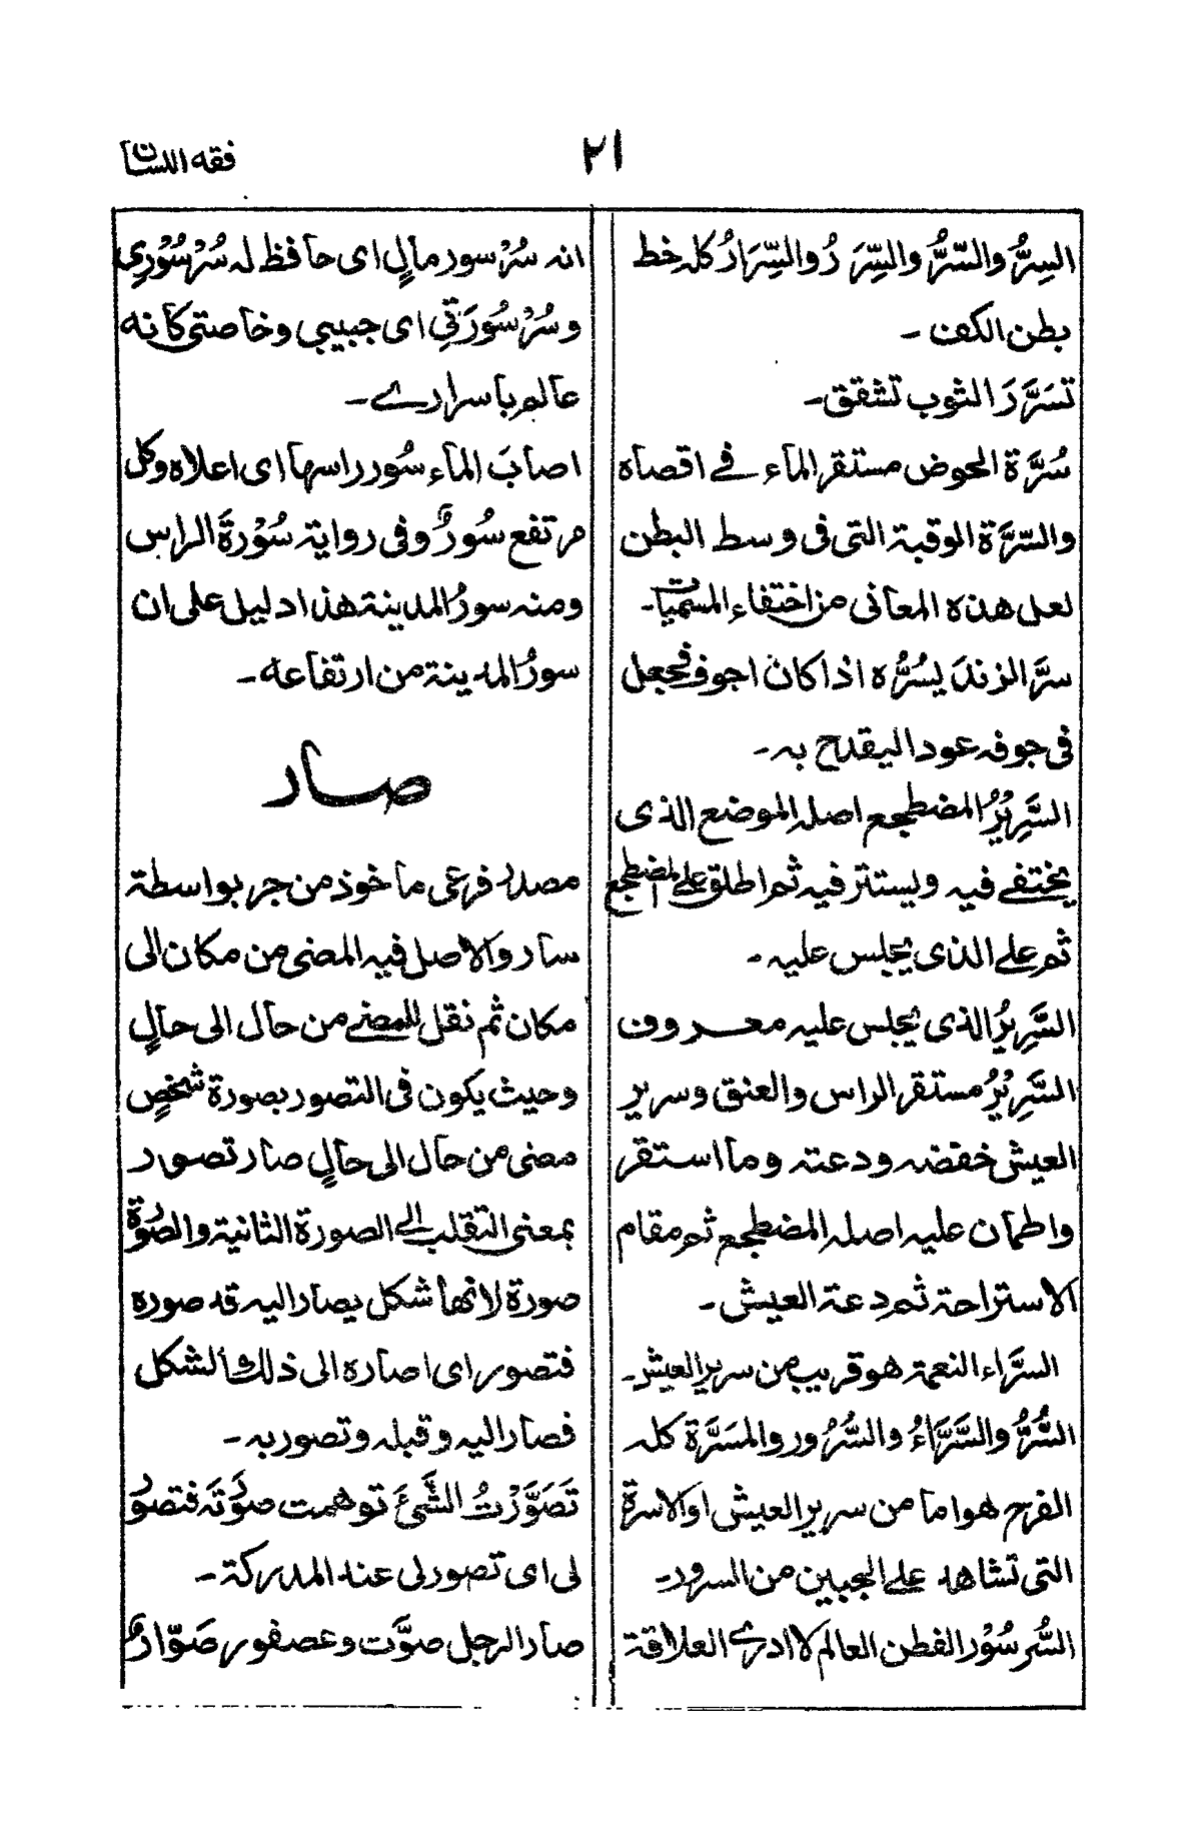 ٢١
فقه اللسان
السِرُّ والسّرُّ والسِّرَ رُ والسِّرَارُ كله خط
بطن الكف ۔
تسَرَّرَ الثوب تشقق۔
سُرَّة الحوض مستقر الماء فے اقصاه
والسّرَّة الوقبة التى فى وسط البطن
لعل هذه المعانى من اختفاء المسميات۔
سرَّ الزندَ يسُرُّه اذا كان اجوف فجعل
فى جوفه عودا ليقدح به۔
السَّرِيْرُ المضطجع اصله الموضع الذى
يختفے فيه ويستتر فيه ثم اطلق علے المضطجع
ثم علے الذى يجلس عليه۔
السَّرِيرُ الذى يجلس عليه معروف
السَّرِيْرُ مستقر الراس والعنق وسرير
العيش خفضه ودعته وما استقر
واطمأن عليه اصله المضطجع ثم مقام
الاستراحة ثم دعة العيش۔
السرَّاء النعمة هو قريب من سرير العيش۔
السُّرُّ والسَّرَّاءُ والسُّرُور والمسَرَّة كله
الفرح هو اما من سرير العيش او الاسرة
التى تشاهد علے الجبين من السرور۔
السُّر سُوْر الفطن العالم لا ادرى العلاقة
انه سُرْ سور مالٍ اى حافظ له سُرْ سُوْرِي
و سُرْ سُورَتِي اى حبيبى وخاصتى كانه
عالم باسرارے۔
اصابَ الماء سُور راسها اى اعلاه وكل
مرتفع سُورٌ وفى رواية سُوْرَةَ الراس
ومنه سورُ المدينة هذا دليل على ان
سورُ المدينة من ارتفاعه۔
صار
مصدر فرعى ماخوذ من جر بواسطة
سار والاصل فيه المضى من مكان الى
مكان ثم نقل للمضے من حال الى حالٍ
وحيث يكون فى التصور بصورة شخصٍ
مضى من حال الى حالٍ صار تصور
بمعنى التقلب الے الصورة الثانية والصُورة
صورة لانها شكل يصار اليه قد صوره
فتصور اى اصاره الى ذلك الشكل
فصار اليه وقبله وتصور به۔
تَصَوَّرْتُ الشَّئَ توهمت صورَتَه فتصور
لى اى تصور لى عند المدركة۔
صار الرجل صوَّت وعصفور صَوّارٌ